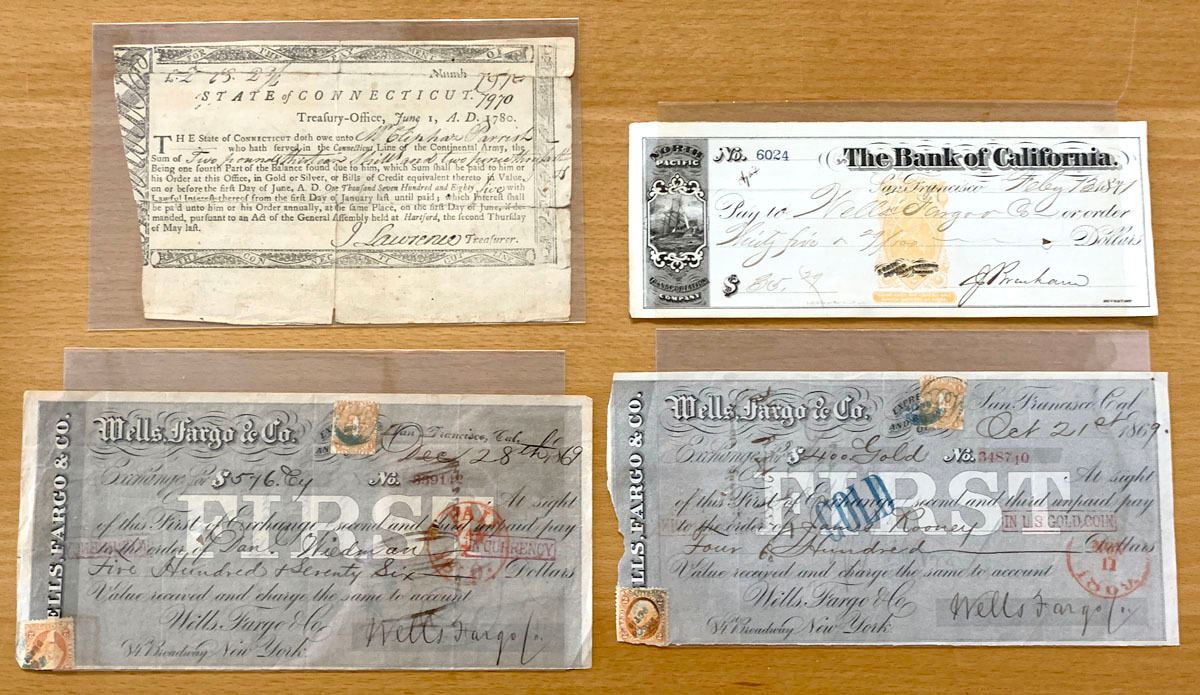 FOR THE PAYMENT OF
Numb
7970
STATE of CONNECTICUT.
Treasury-Office, June 1, A. D. 1780.
THE State of CONNECTICUT doth owe unto Mr Eliphaz Parrish
who hath served in the Connecticut Line of the Continental Army, the
Sum of Two pounds
Being one fourth Part of the Balance found due to him, which Sum shall be paid to him or
his Order at this Office, in Gold or Silver, or Bills of Credit equivalent thereto in Value,
on or before the first Day of June, A. D. One Thousand Seven Hundred and Eighty five with
Lawful Interest thereof from the first Day of January last until paid; which Interest shall
be paid unto him or his Order annually, at the same Place, on the first Day of June, if de-
manded, pursuant to an Act of the General Assembly held at Hartford, the second Thursday
of May last.
J Lawrence Treasurer.
NORTH
PACIFIC
TRANSPORTATION
COMPANY
No. 6024
The Bank of California.
San Francisco Feby 13 1871
Pay to Wells Fargo & Co or order
Ninty five 29/100 Dollars
$ 95.29
WELLS, FARGO & CO.
Wells, Fargo & Co.
San Francisco, Cal. Dec 28th 1869
Exchange for $576. Cy
No. 339142
At sight
FIRST
of this First of Exchange second and third unpaid pay
to the order of Dan. Wiedman
IN CURRENCY
Five Hundred & Seventy Six Dollars
Value received and charge the same to account
Wells Fargo & Co
84 Broadway New York.
Wells Fargo Co.
WELLS, FARGO & CO.
Wells, Fargo & Co.
San Francisco, Cal
Oct 21st 1869.
Exchange for $400 Gold
No. 348740
At sight
FIRST
GOLD
of this First of Exchange second and third unpaid pay
to the order of James Rooney
IN U S GOLD COIN
Four Hundred Dollars
Value received and charge the same to account
Wells Fargo & Co
84 Broadway New York
Wells Fargo Co